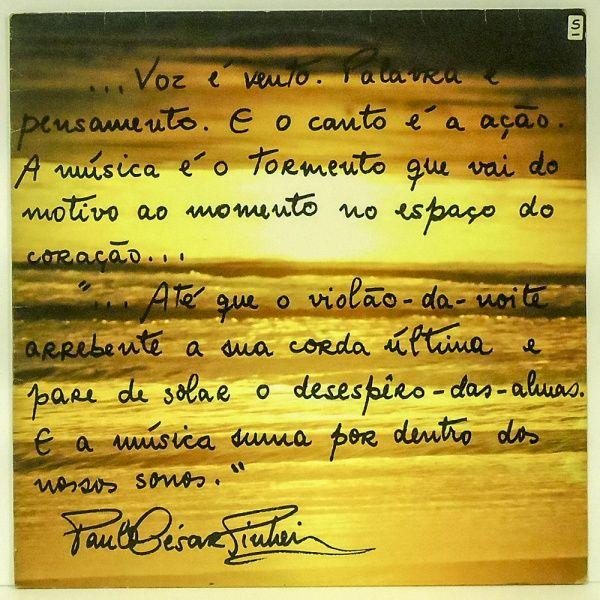 S
...Voz é vento. Palavra é
pensamento. E o canto é a ação.
A música é o tormento que vai do
motivo ao momento no espaço do
coração...
"... Até que o violão-da-noite
arrebente a sua corda última e
pare de solar o desespêro-das-almas.
E a música suma por dentro dos
nossos sonos."
Paulo César Pinheiro